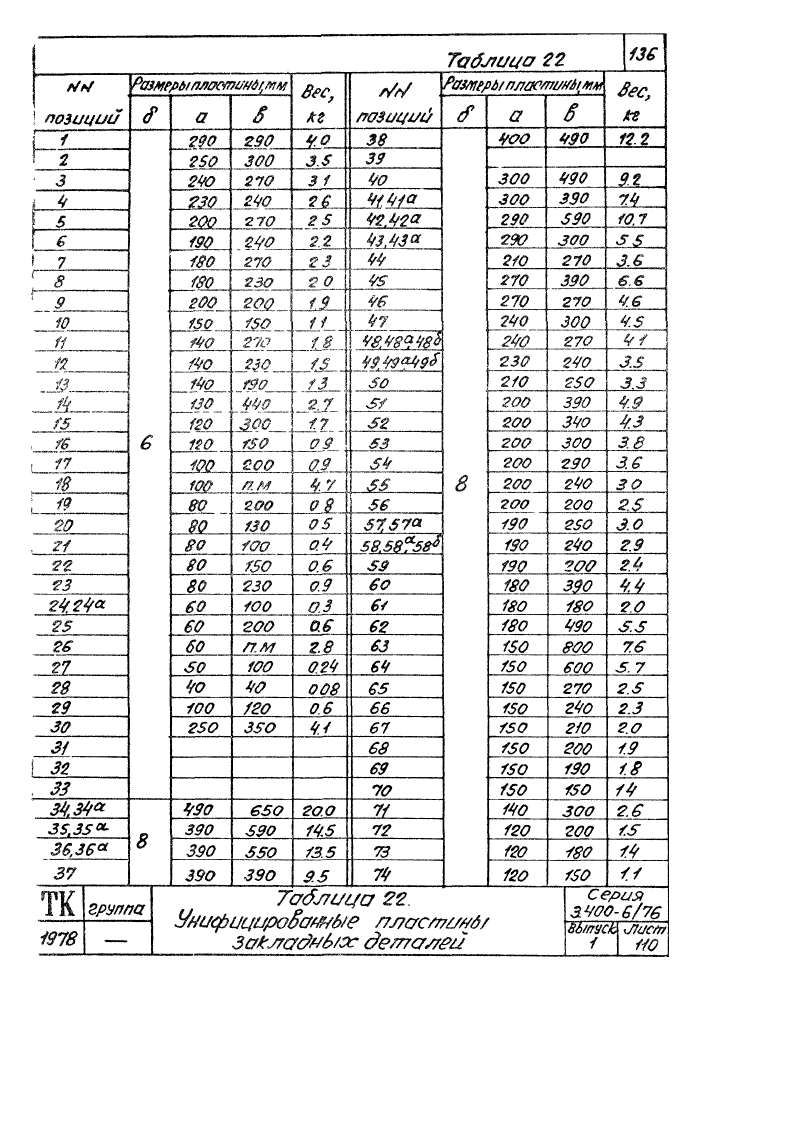 Таблица 22 136
NN позиций Размеры пластины, мм Вес, кг NN позиций Размеры пластины, мм Вес, кг
δ а в δ а в
1 6 290 290 4.0 38 8 400 490 12.2
2 250 300 3.5 39
3 240 270 3.1 40 300 490 9.2
4 230 240 2.6 41,41а 300 390 7.4
5 200 270 2.5 42,42а 290 590 10.7
6 190 240 2.2 43,43а 290 300 5.5
7 180 270 2.3 44 210 270 3.6
8 180 230 2.0 45 270 390 6.6
9 200 200 1.9 46 270 270 4.6
10 150 150 1.1 47 240 300 4.5
11 140 270 1.8 48,48а,48б 240 270 4.1
12 140 230 1.5 49,49а,49б 230 240 3.5
13 140 190 1.3 50 210 250 3.3
14 130 440 2.7 51 200 390 4.9
15 120 300 1.7 52 200 340 4.3
16 120 150 0.9 53 200 300 3.8
17 100 200 0.9 54 200 290 3.6
18 100 п.м 4.7 55 200 240 3.0
19 80 200 0.8 56 200 200 2.5
20 80 130 0.5 57,57а 190 250 3.0
21 80 100 0.4 58,58а,58б 190 240 2.9
22 80 150 0.6 59 190 200 2.4
23 80 230 0.9 60 180 390 4.4
24,24а 60 100 0.3 61 180 180 2.0
25 60 200 0.6 62 180 490 5.5
26 60 п.м 2.8 63 150 800 7.6
27 50 100 0.24 64 150 600 5.7
28 40 40 0.08 65 150 270 2.5
29 100 120 0.6 66 150 240 2.3
30 250 350 4.1 67 150 210 2.0
31 68 150 200 1.9
32 69 150 190 1.8
33 70 150 150 1.4
34,34а 8 490 650 20.0 71 140 300 2.6
35,35а 390 590 14.5 72 120 200 1.5
36,36а 390 550 13.5 73 120 180 1.4
37 390 390 9.5 74 120 150 1.1
ТК группа Таблица 22. Серия
Унифицированные пластины 3.400-6/76
1978 — закладных деталей Выпуск Лист
1 110